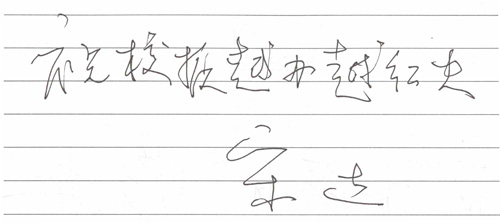 祝校报越办越红火
宋